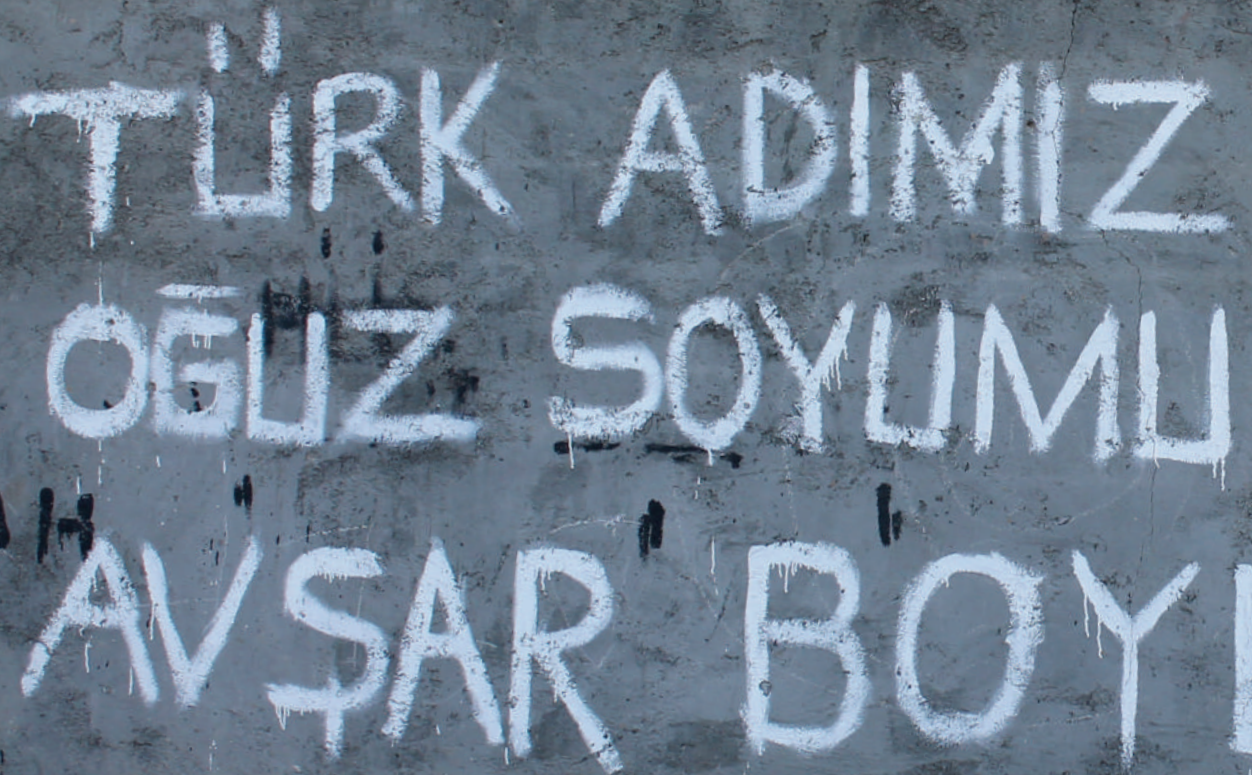 TÜRK ADIMIZ
OĞUZ SOYUMU
AVŞAR BOY